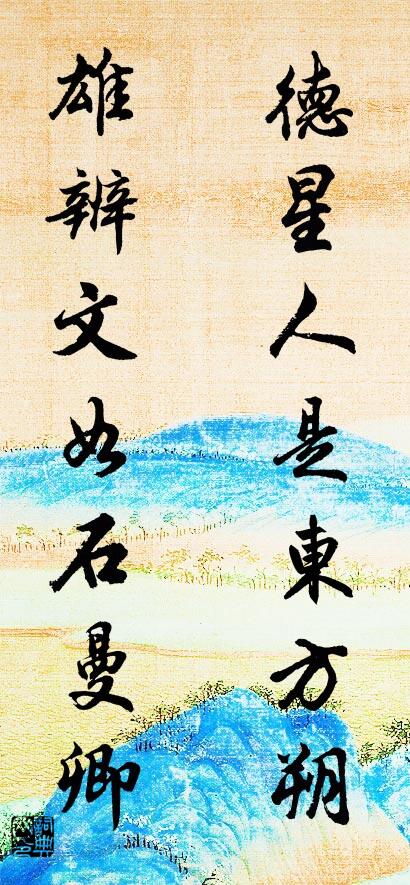 德星人是東方朔
雄辨文如石曼卿